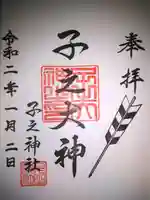 奉拝
子之大神
子之神社
令和二年一月二日